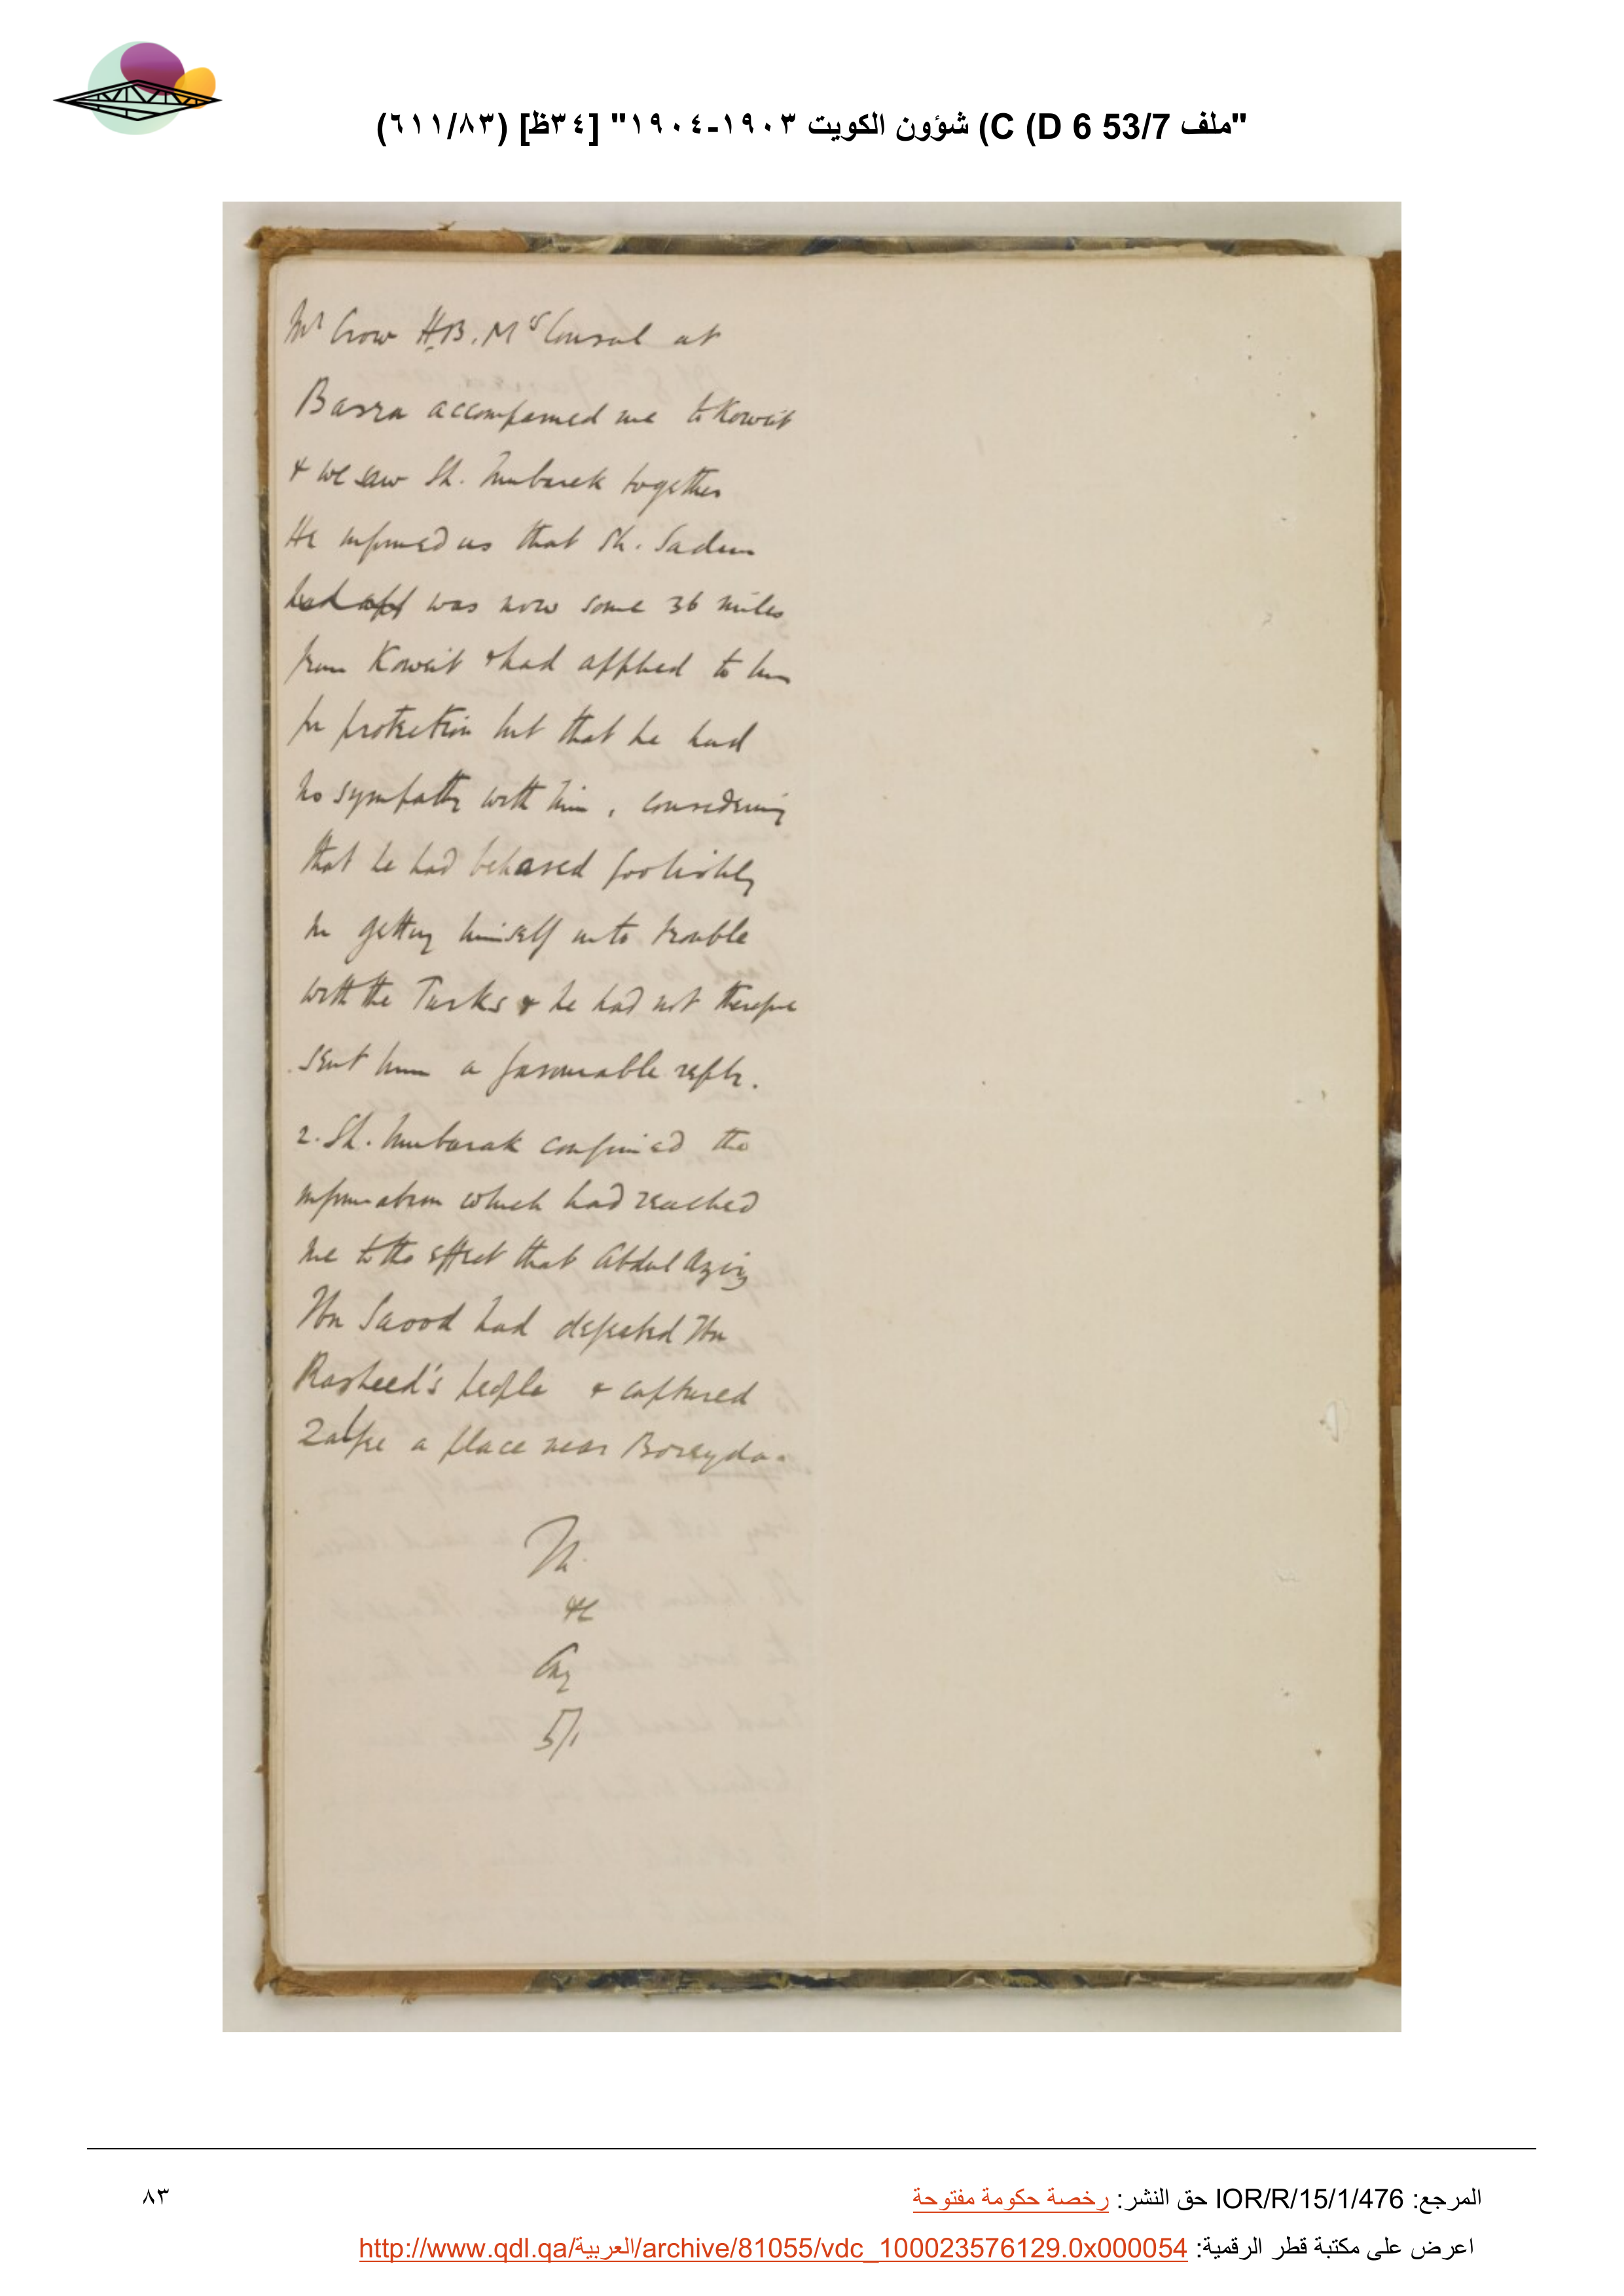 "ملف 53/7 D 6) C) شؤون الكويت ١٩٠٣-١٩٠٤" [٣٤ظ] (٦١١/٨٣)
Mr Crow H.B.M's Consul at
Basra accompanied me to Koweit
& we saw Sh. Mubarek together
He informed us that Sh. Sadun
had was now some 36 miles
from Koweit & had applied to him
for protection but that he had
no sympathy with him, considering
that he had behaved foolishly
in getting himself into trouble
with the Turks & he had not therefore
sent him a favourable reply.
2. Sh. Mubarak confirmed the
information which had reached
me to the effect that Abdul Aziz
Ibn Saood had defeated Ibn
Rasheed's people & captured
a place near Boreyda.
5/1
المرجع: IOR/R/15/1/476 حق النشر: رخصة حكومة مفتوحة
٨٣
اعرض على مكتبة قطر الرقمية: http://www.qdl.qa/العربية/archive/81055/vdc_100023576129.0x000054